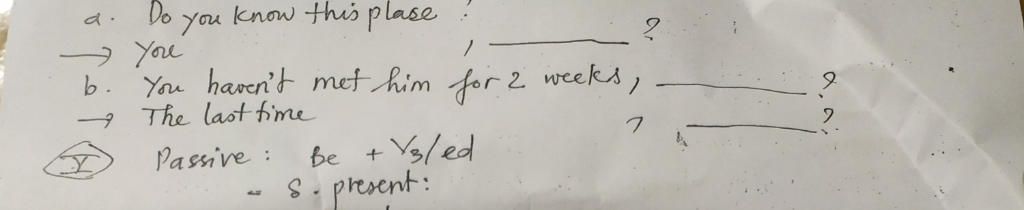 a. Do you know this place ?
→ You , ________ ?
b. You haven't met him for 2 weeks, ________ ?
→ The last time , ________ ?
V Passive : Be + V3/ed
- S. present :